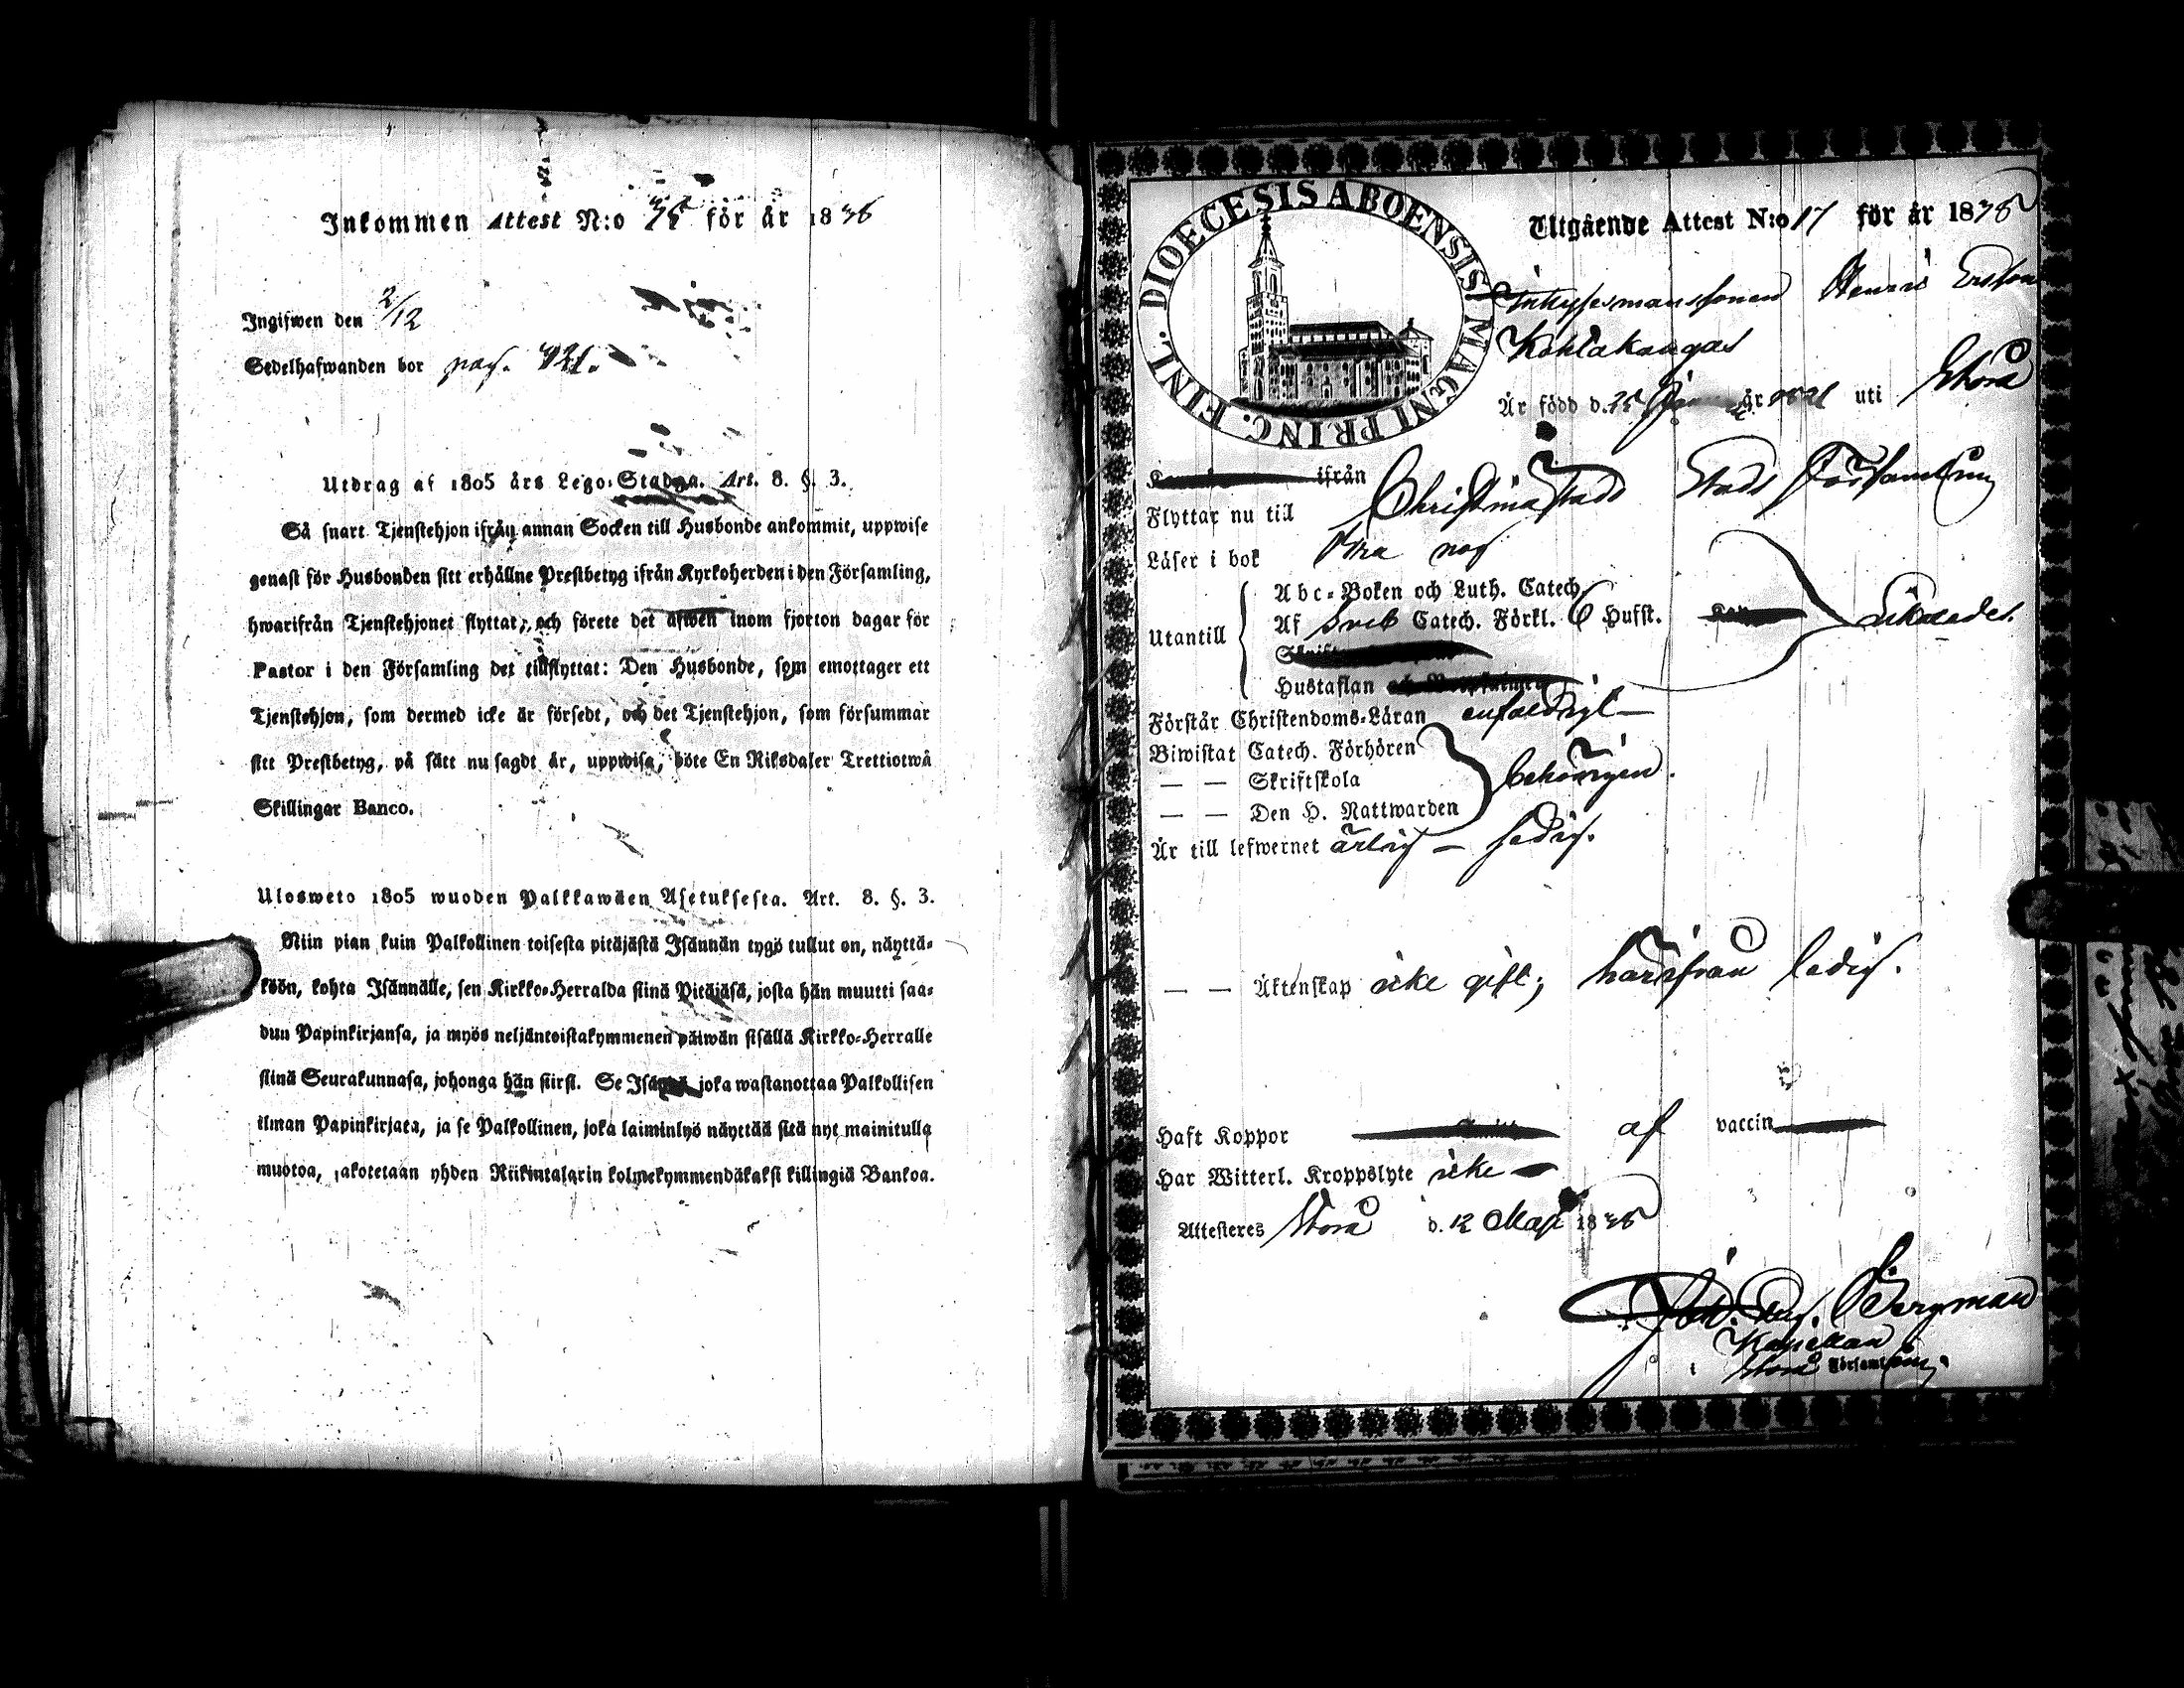 Inkommen Attest N:o för år 1838
Ingifwen den 2/12
Sedelhafwanden bor pag. 421.
Utdrag af 1805 års Lego-Stadga. Art. 8. §. 3.
Så snart Tjenstehjon ifrån annan Socken till Husbonde ankommit, uppwise
genast för Husbonden sitt erhållne Prestbetyg ifrån Kyrkoherden i den Församling,
hwarifrån Tjenstehjonet flyttat, och förete det äfwen inom fjorton dagar för
Pastor i den Församling det tillflyttat: Den Husbonde, som emottager ett
Tjenstehjon, som dermed icke är försedt, och det Tjenstehjon, som försummar
sitt Prestbetyg, på sätt nu sagdt är, uppwisa, böte En Riksdaler Trettiotwå
Skillingar Banco.
Ulosweto 1805 wuoden Palkkawäen Asetuksesta. Art. 8. §. 3.
Niin pian kuin Palkollinen toisesta pitäjästä Isännän tygö tullut on, näyttä-
köön, kohta Isännälle, sen Kirkko-Herralda siinä Pitäjäsä, josta hän muutti saa-
dun Papinkirjansa, ja myös neljäntoistakymmenen päiwän sisällä Kirkko-Herralle
siinä Seurakunnasa, johonga hän siirsi. Se Isäntä joka wastanottaa Palkollisen
ilman Papinkirjata, ja se Palkollinen, joka laiminlyö näyttää sitä nyt mainitulla
muotoa, sakotetaan yhden Riikintalarin kolmekymmendäkaksi killingiä Bankoa.
DIOECESIS ABOENSIS MAGNI PRINC. FINL.
Utgående Attest N:o 17 för år 1838
Inhysesmanssonen Henric Ersson
Kohlakangas
Är född d. 25 år 1821 uti Storå
ifrån
Flyttar nu till Christinæstads Stads Församling
Läser i bok bra nog
Utantill
Abc-Boken och Luth. Catech.
Af Sveb Catech. Förkl. 6 Hufst.
Hustaflan
Förstår Christendoms-Läran enfaldigt
Biwistat Catech. Förhören
— — Skriftskola behörigen.
— — Den H. Nattwarden
Är till lefwernet ärlig — sedig.
— — Äktenskap icke gift; härifrån ledig.
Haft Koppor af vaccin
Har Witterl. Kroppslyte icke
Attesteres Storå d. 12 Maji 1838
Bergman
Kapellan
i Storå Församling.